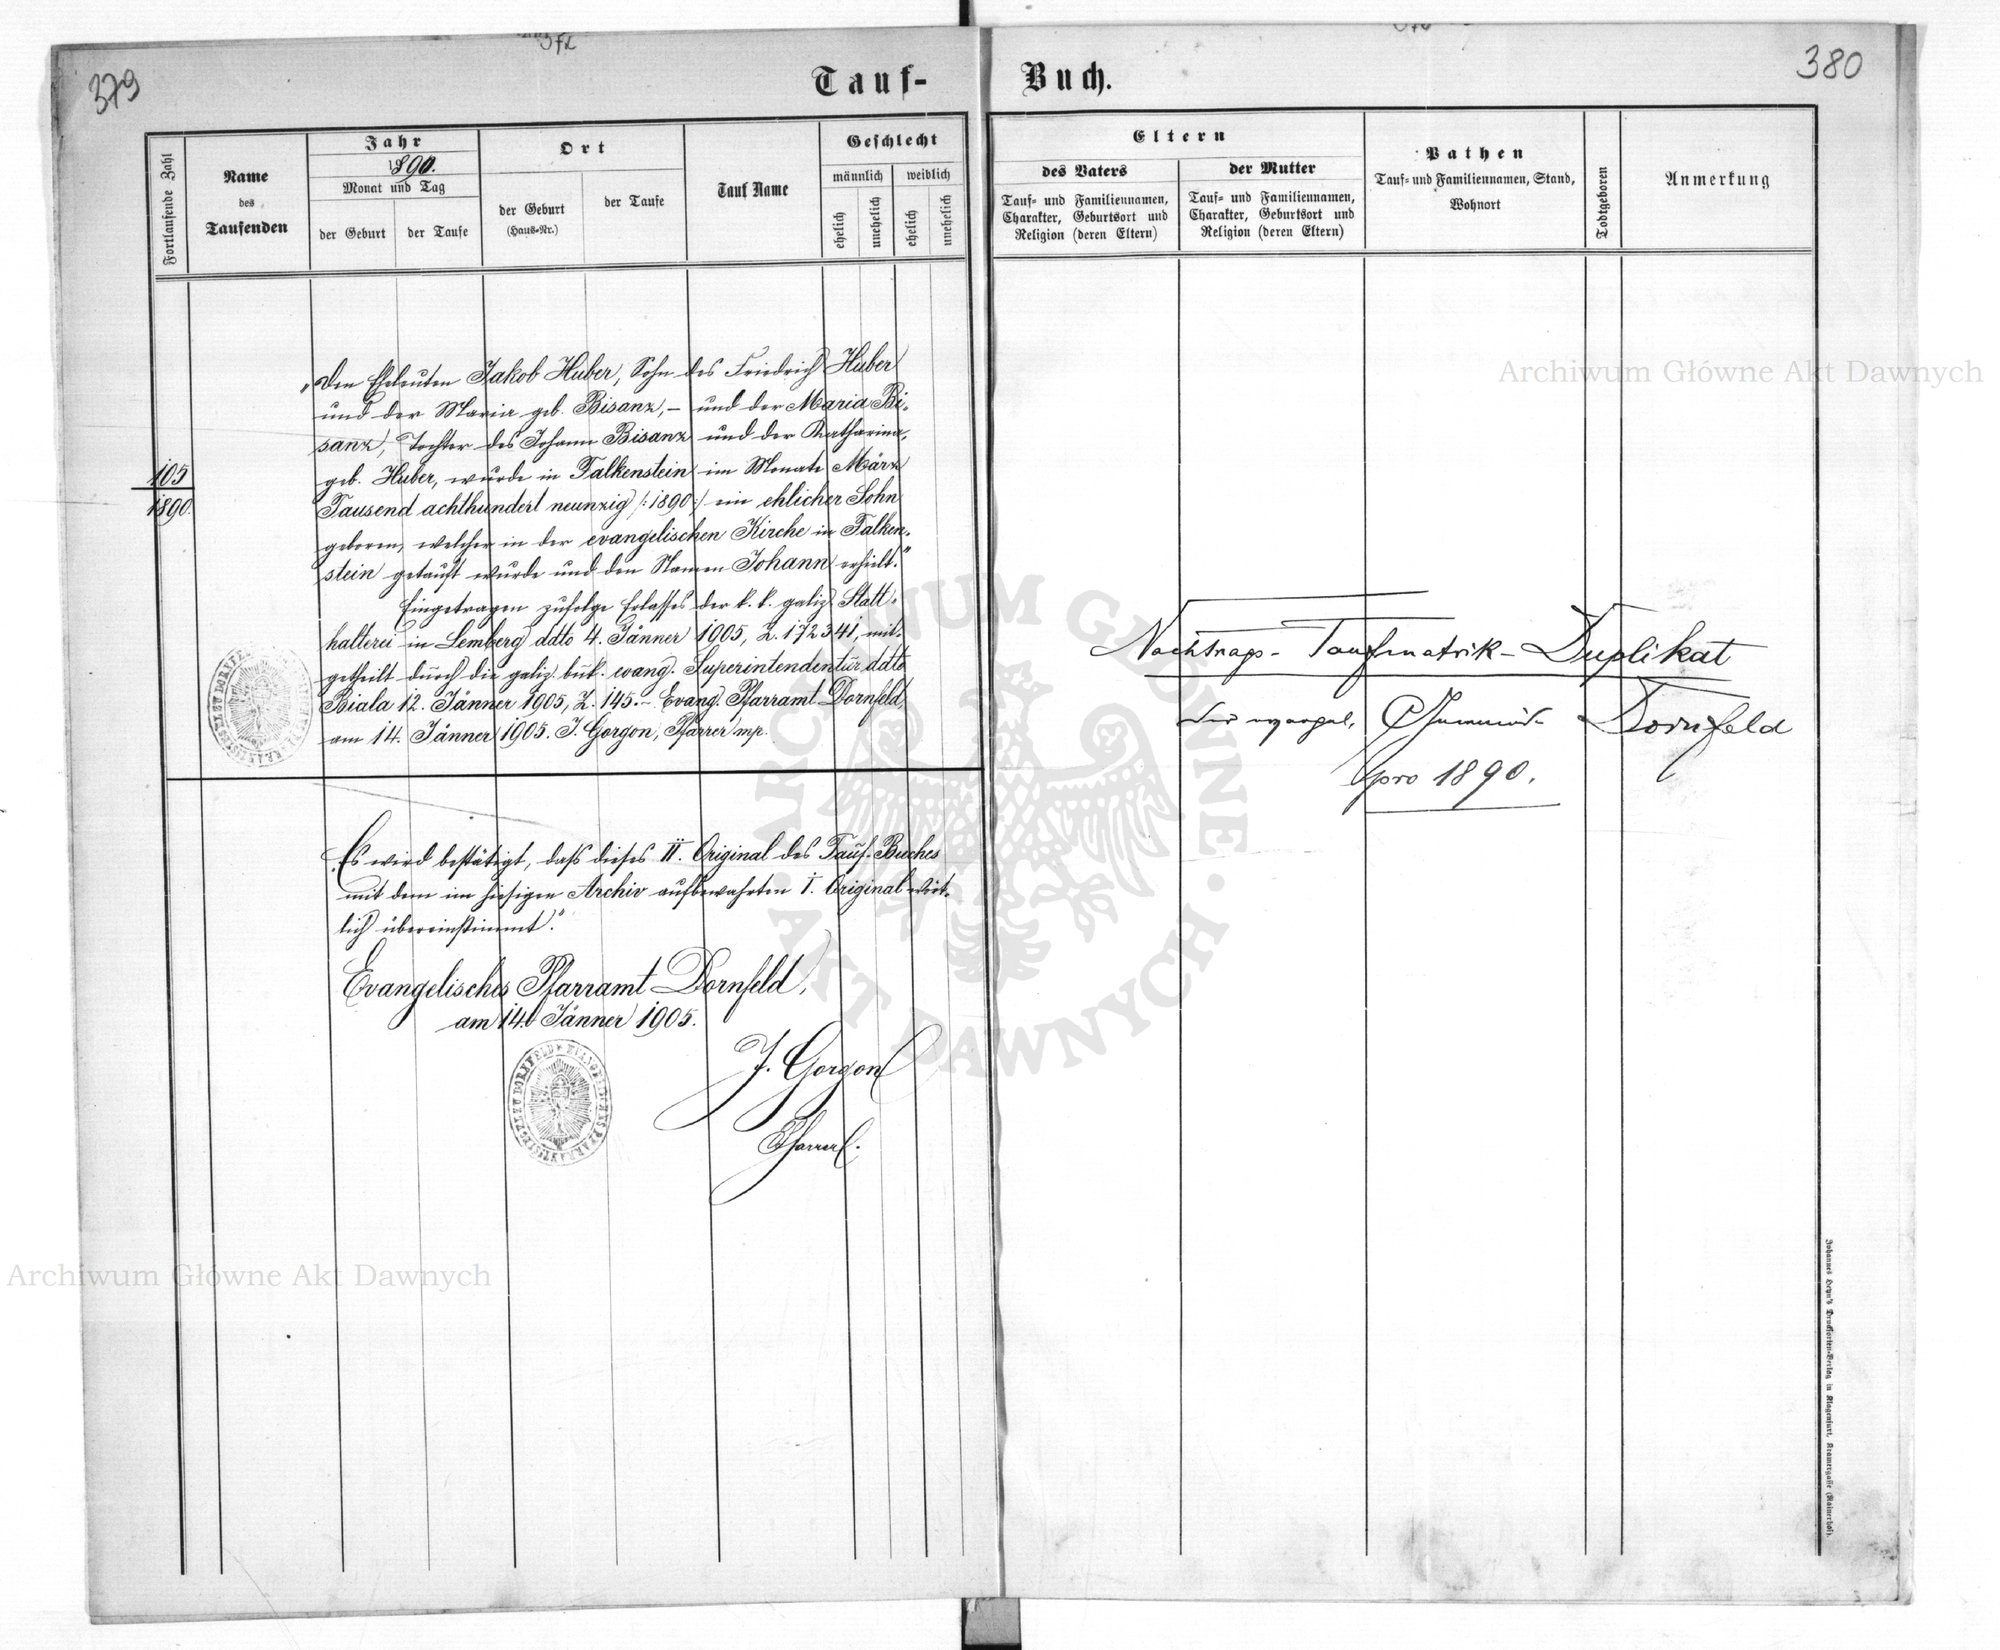 379
380
Tauf-
Buch.
Fortlaufende Zahl
Name
des
Taufenden
Jahr
1890.
Monat und Tag
der Geburt
der Taufe
Ort
der Geburt
(Haus-Nr.)
der Taufe
Tauf Name
Geschlecht
männlich
weiblich
ehelich
unehelich
ehelich
unehelich
Eltern
des Vaters
Tauf- und Familiennamen,
Charakter, Geburtsort und
Religion (deren Eltern)
der Mutter
Tauf- und Familiennamen,
Charakter, Geburtsort und
Religion (deren Eltern)
Pathen
Tauf- und Familiennamen, Stand,
Wohnort
Todtgeboren
Anmerkung
105
1890.
"Den Eheleuten Jakob Huber, Sohn des Friedrich Huber
und der Maria geb. Bisanz, – und der Maria Bi-
sanz, Tochter des Johann Bisanz und der Katharina,
geb. Huber, wurde in Falkenstein im Monate März
Tausend achthundert neunzig /:1890:/ ein ehlicher Sohn
geboren, welcher in der evangelischen Kirche in Falken-
stein getauft wurde und den Namen Johann erhielt."
Eingetragen zufolge Erlasses der k. k. galiz. Statt-
halterei in Lemberg ddto 4. Jänner 1905, Z. 172341, mit-
getheilt durch die galiz. buk. evang. Superintendentur ddto
Biala 12. Jänner 1905, Z. 145. – Evang. Pfarramt Dornfeld,
am 14. Jänner 1905. J. Gorgon, Pfarrer mp.
"Es wird bestätigt, daß dieses II. Original des Tauf-Buches
mit dem im hiesigen Archiv aufbewahrten I. Original wört-
lich übereinstimmt."
Evangelisches Pfarramt Dornfeld,
am 14. Jänner 1905.
J. Gorgon
Pfarrer.
Nachtrags-Taufmatrik-Duplikat
Dornfeld
pro 1890.
Johannes Heyn's Drucksorten-Verlag in Klagenfurt, Kramergasse (Rainerhof).
Archiwum Główne Akt Dawnych
Archiwum Główne Akt Dawnych
ARCHIWUM GŁÓWNE
AKT DAWNYCH